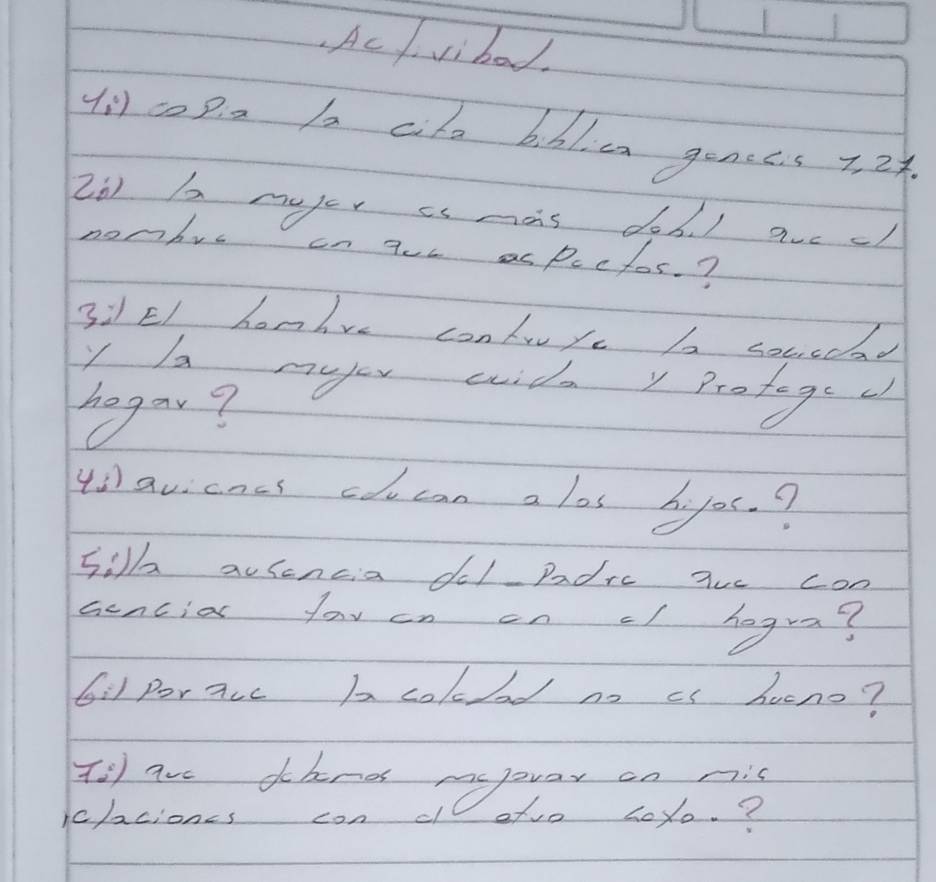 Actividad.
1:) copia la cita biblica genesis 1,27.
2:) la mujer es más debil que el
nombre en que aspectos.?
3:) El hombre contruye la sociedad
y la mujer cuida y Protege el
hogar?
4:) quienes educan a los hijos.?
5:) la ausencia del Padre que con
cencias en el hogra?
6:) Por que la soledad no es bueno?
7:) que debemos mejorar en mis
relaciones con el otro sexo.?